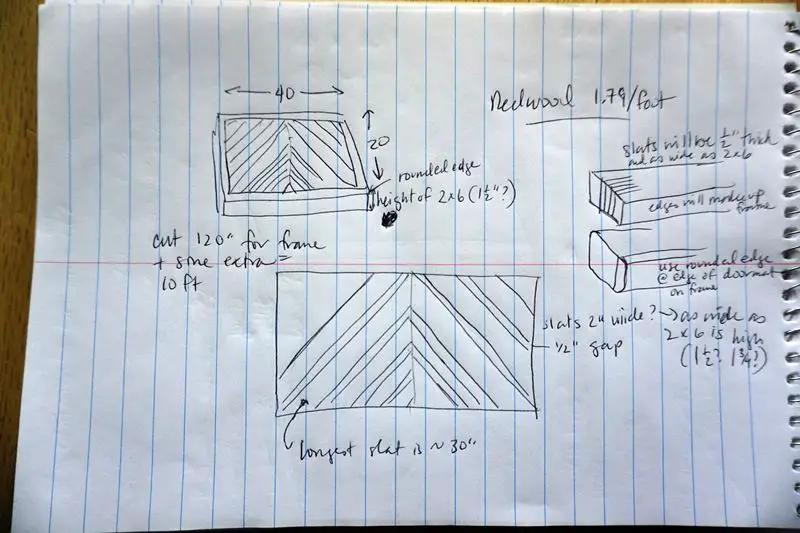 40
Redwood 1.79/foot
20
rounded edge
height of 2x6 (1½"?)
cut 120" for frame
+ some extra =
10 ft
slats will be ½" thick
and as wide as 2x6
edges will make up
frame
use rounded edge
@ edge of doormat
on frame
slats 2" wide? → as wide as
2x6 is high
(1½? 1¾?)
½" gap
longest slat is ~ 30"